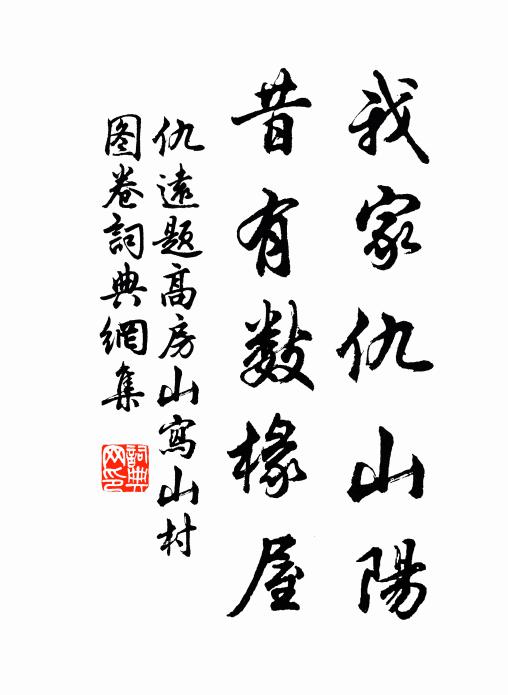 我家仇山陽
昔有數椽屋
仇遠題高房山寫山村
图卷詞典網集
詞典网印